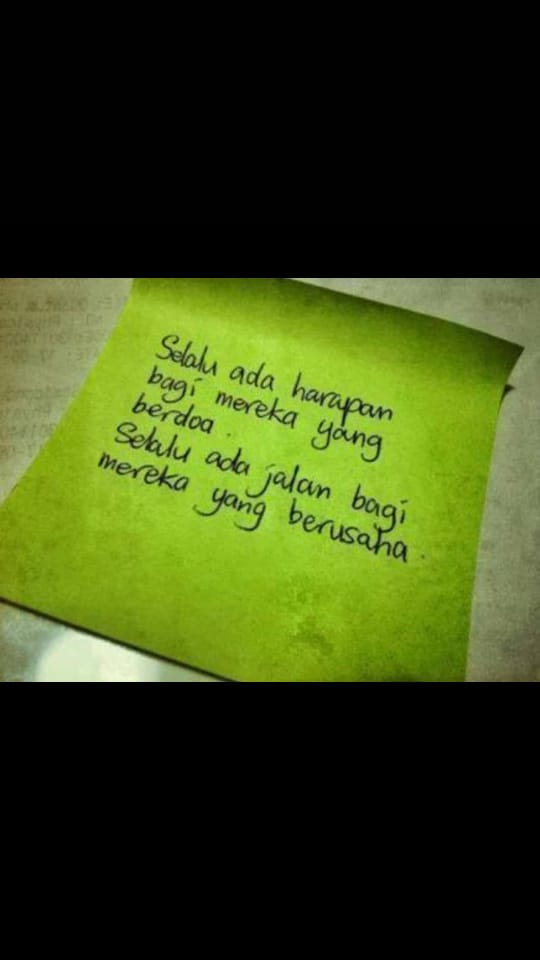 Selalu ada harapan
bagi mereka yang
berdoa.
Selalu ada jalan bagi
mereka yang berusaha.